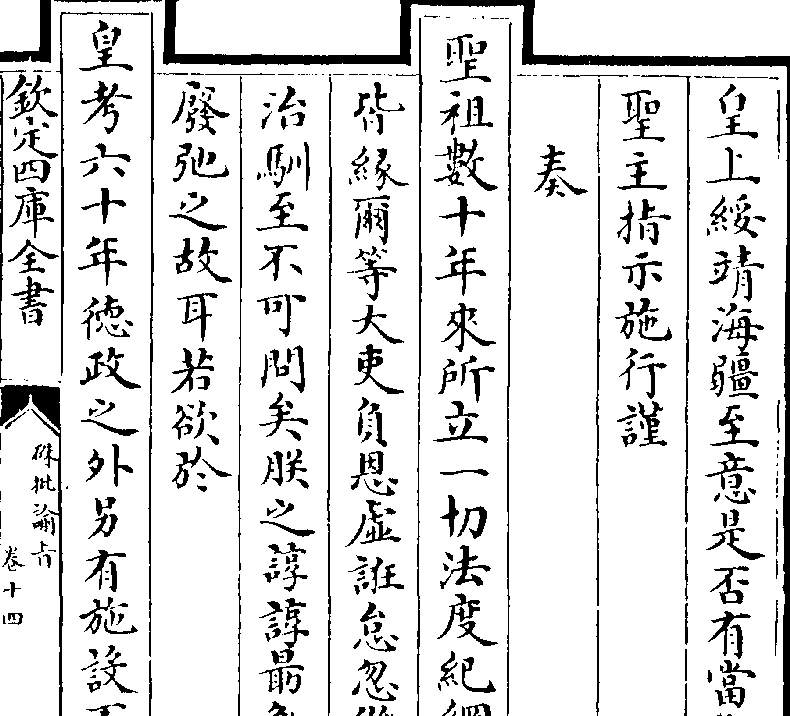 皇上綏靖海疆至意是否有當
聖主指示施行謹
奏
聖祖數十年來所立一切法度紀綱
皆緣爾等大吏負恩虛誑怠忽
治馴至不可問矣朕之諄諄最
廢弛之故耳若欲於
皇考六十年德政之外另有施設
欽定四庫全書
硃批諭旨
卷十四